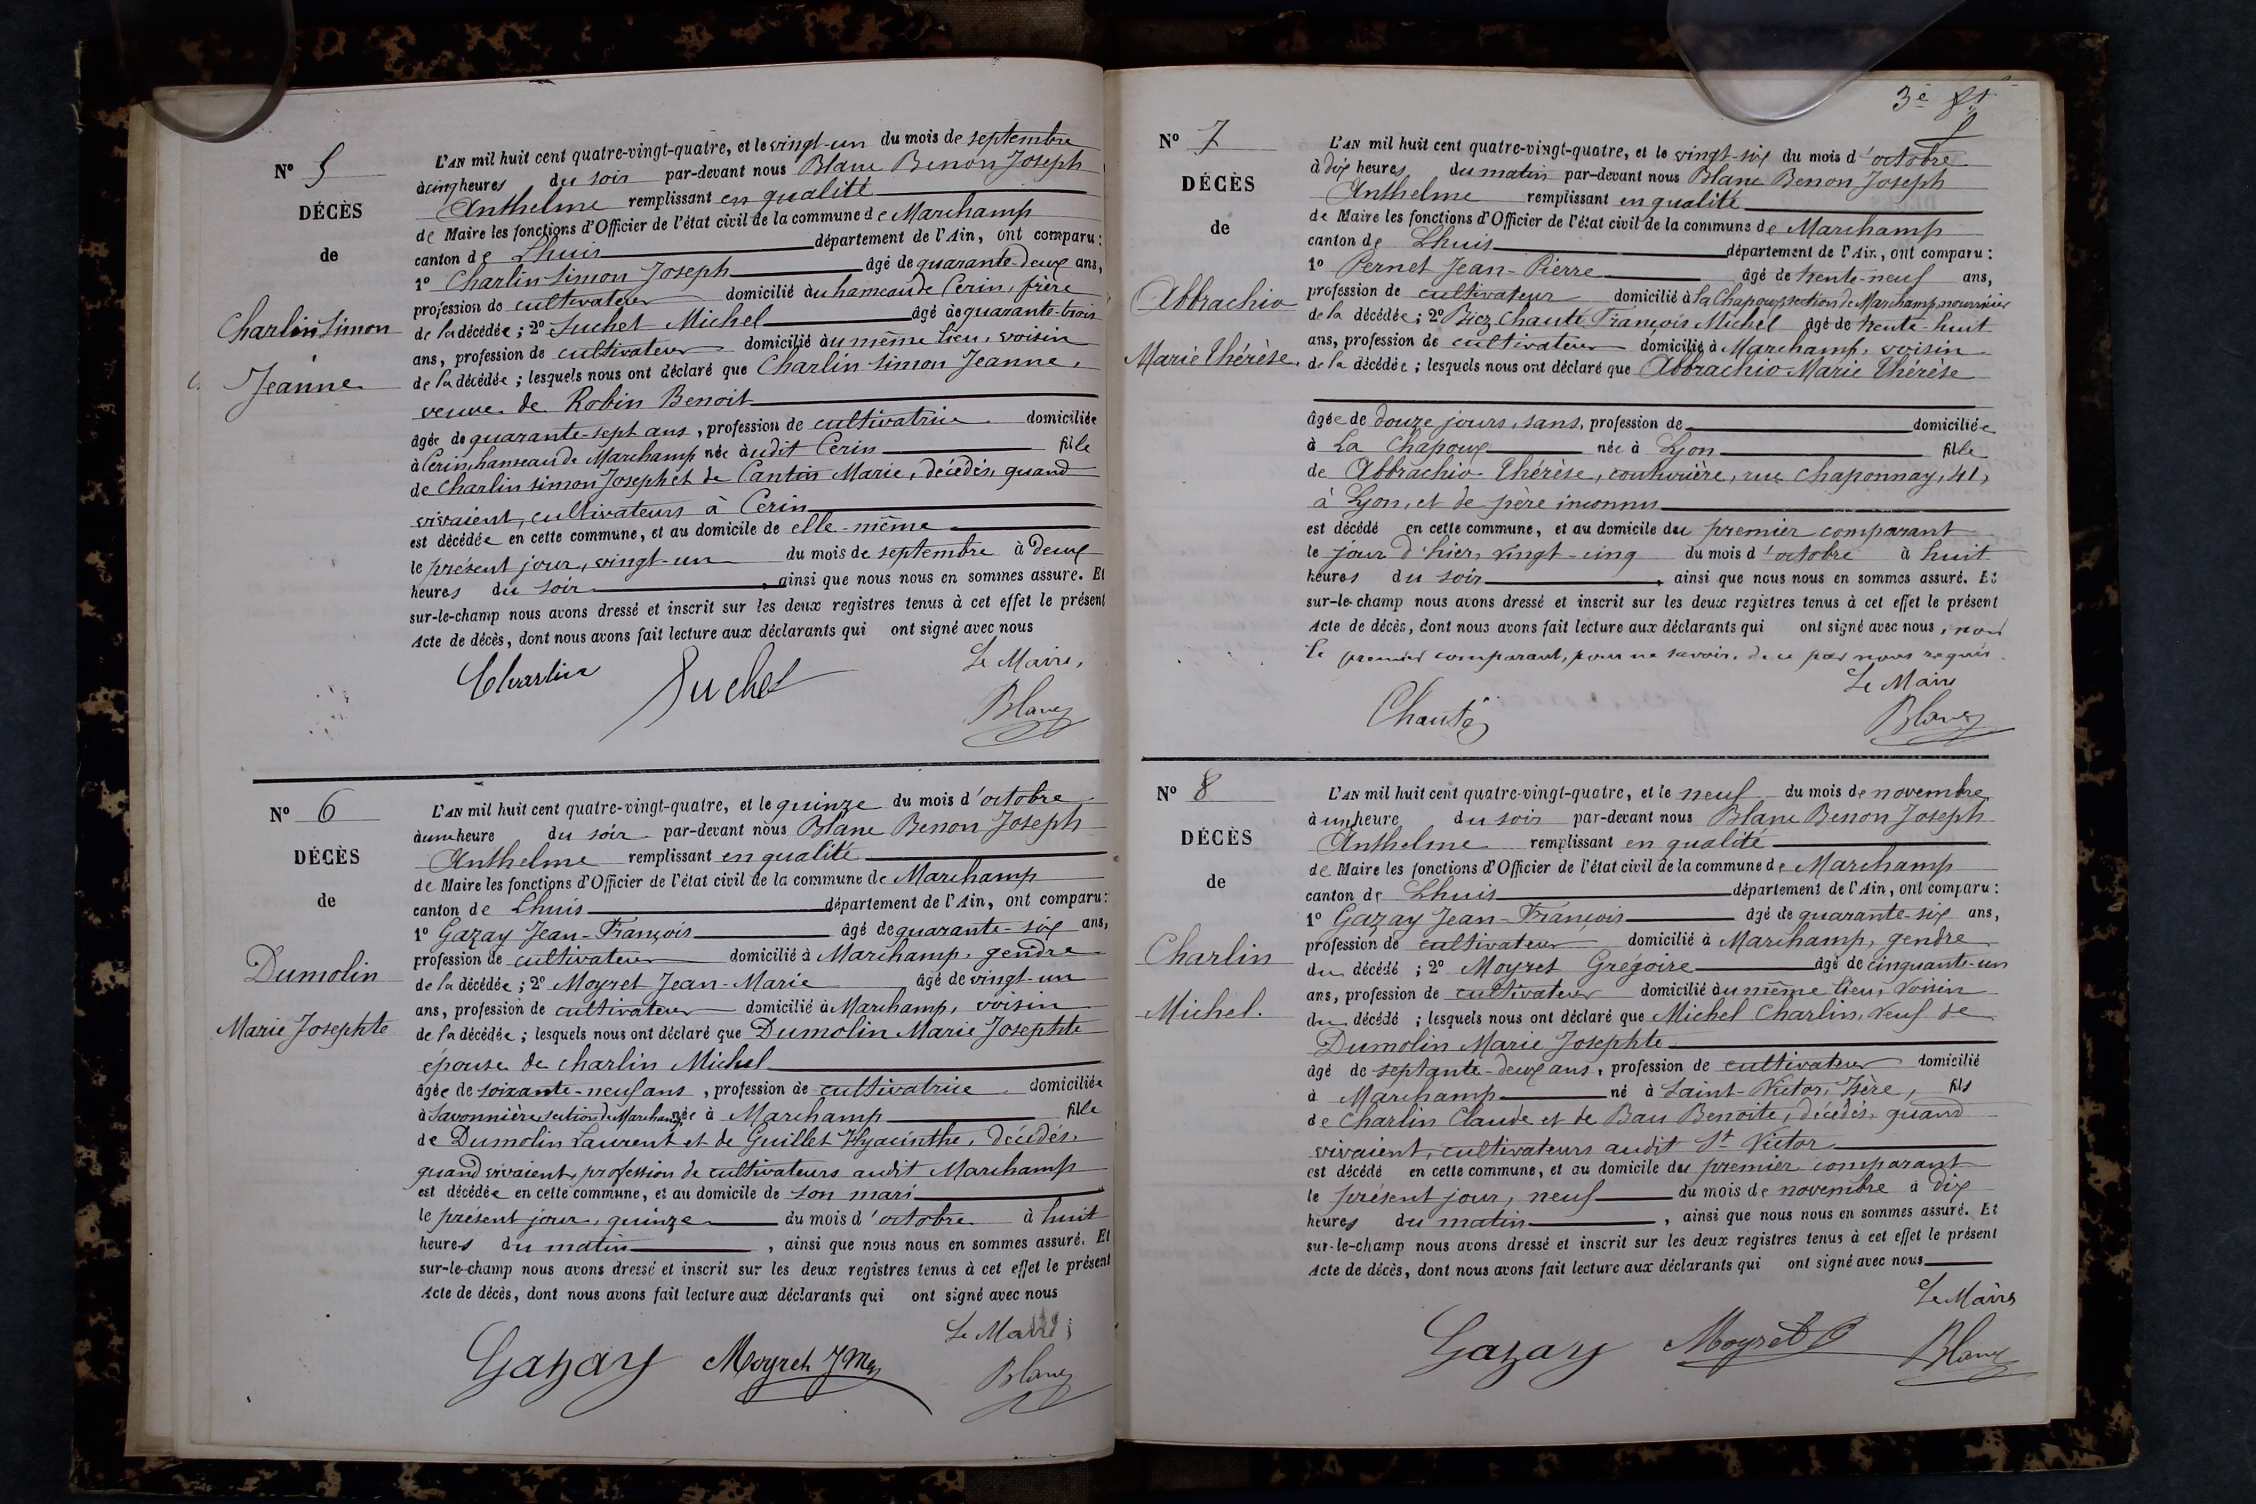 Nº 5
DÉCÈS
de
Charlin Simon
Jeanne
L'AN mil huit cent quatre-vingt-quatre, et le vingt-un du mois de septembre
à cinq heures du soir par-devant nous Blanc Benon Joseph
Anthelme remplissant en qualité
de Maire les fonctions d'Officier de l'état civil de la commune de Marchamp
canton de Lhuis département de l'Ain, ont comparu :
1º Charlin Simon Joseph âgé de quarante-deux ans,
profession de cultivateur domicilié au hameau de Cerin, frère
de la décédée ; 2º Suchet Michel âgé de quarante-trois
ans, profession de cultivateur domicilié au même lieu, voisin
de la décédée ; lesquels nous ont déclaré que Charlin Simon Jeanne,
veuve de Robin Benoit
âgée de quarante-sept ans, profession de cultivatrice domiciliée
à Cerin, hameau de Marchamp née audit Cerin fille
de Charlin Simon Joseph et de Cantin Marie, décédés, quand
vivaient, cultivateurs à Cerin
est décédée en cette commune, et au domicile de elle-même
le présent jour, vingt-un du mois de septembre à deux
heures du soir, ainsi que nous nous en sommes assuré. Et
sur-le-champ nous avons dressé et inscrit sur les deux registres tenus à cet effet le présent
Acte de décès, dont nous avons fait lecture aux déclarants qui ont signé avec nous
Le Maire,
Charlin Suchet
Blanc
Nº 6
DÉCÈS
de
Dumolin
Marie Josephte
L'AN mil huit cent quatre-vingt-quatre, et le quinze du mois d'octobre
à une heure du soir par-devant nous Blanc Benon Joseph
Anthelme remplissant en qualité
de Maire les fonctions d'Officier de l'état civil de la commune de Marchamp
canton de Lhuis département de l'Ain, ont comparu :
1º Gazay Jean-François âgé de quarante-six ans,
profession de cultivateur domicilié à Marchamp, gendre
de la décédée ; 2º Moyret Jean-Marie âgé de vingt-un
ans, profession de cultivateur domicilié à Marchamp, voisin
de la décédée ; lesquels nous ont déclaré que Dumolin Marie Josephte
épouse de Charlin Michel
âgée de soixante-neuf ans, profession de cultivatrice domiciliée
à Savonnière, section de Marchamp née à Marchamp fille
de Dumolin Laurent et de Guillet Hyacinthe, décédés,
quand vivaient, profession de cultivateurs audit Marchamp
est décédée en cette commune, et au domicile de son mari
le présent jour, quinze du mois d'octobre à huit
heures du matin, ainsi que nous nous en sommes assuré. Et
sur-le-champ nous avons dressé et inscrit sur les deux registres tenus à cet effet le présent
Acte de décès, dont nous avons fait lecture aux déclarants qui ont signé avec nous
Le Maire,
Gazay Moyret J M
Blanc
3e ft
Nº 7
DÉCÈS
de
Abbrachio
Marie Thérèse
L'AN mil huit cent quatre-vingt-quatre, et le vingt-six du mois d'octobre
à dix heures du matin par-devant nous Blanc Benon Joseph
Anthelme remplissant en qualité
de Maire les fonctions d'Officier de l'état civil de la commune de Marchamp
canton de Lhuis département de l'Ain, ont comparu :
1º Pernet Jean-Pierre âgé de trente-neuf ans,
profession de cultivateur domicilié à la Chapoux section de Marchamp, nourricier
de la décédée ; 2º Biez Chanté François Michel âgé de trente-huit
ans, profession de cultivateur domicilié à Marchamp, voisin
de la décédée ; lesquels nous ont déclaré que Abbrachio Marie Thérèse
âgée de douze jours, sans, profession de domiciliée
à La Chapoux née à Lyon fille
de Abbrachio Thérèse, couturière, rue Chaponnay, 41,
à Lyon, et de père inconnu
est décédé en cette commune, et au domicile du premier comparant
le jour d'hier, vingt-cinq du mois d'octobre à huit
heures du soir, ainsi que nous nous en sommes assuré. Et
sur-le-champ nous avons dressé et inscrit sur les deux registres tenus à cet effet le présent
Acte de décès, dont nous avons fait lecture aux déclarants qui ont signé avec nous, non
le premier comparant, pour ne savoir, de ce par nous requis.
Le Maire
Chanté
Blanc
Nº 8
DÉCÈS
de
Charlin
Michel.
L'AN mil huit cent quatre-vingt-quatre, et le neuf du mois de novembre
à une heure du soir par-devant nous Blanc Benon Joseph
Anthelme remplissant en qualité
de Maire les fonctions d'Officier de l'état civil de la commune de Marchamp
canton de Lhuis département de l'Ain, ont comparu :
1º Gazay Jean-François âgé de quarante-six ans,
profession de cultivateur domicilié à Marchamp, gendre
du décédé ; 2º Moyret Grégoire âgé de cinquante-un
ans, profession de cultivateur domicilié au même lieu, voisin
du décédé ; lesquels nous ont déclaré que Michel Charlin, veuf de
Dumolin Marie Josephte
âgé de septante-deux ans, profession de cultivateur domicilié
à Marchamp né à Saint-Victor, Isère, fils
de Charlin Claude et de Bau Benoite, décédés, quand
vivaient, cultivateurs audit St Victor
est décédé en cette commune, et au domicile du premier comparant
le présent jour, neuf du mois de novembre à dix
heures du matin, ainsi que nous nous en sommes assuré. Et
sur-le-champ nous avons dressé et inscrit sur les deux registres tenus à cet effet le présent
Acte de décès, dont nous avons fait lecture aux déclarants qui ont signé avec nous
Le Maire
Gazay Moyret G
Blanc